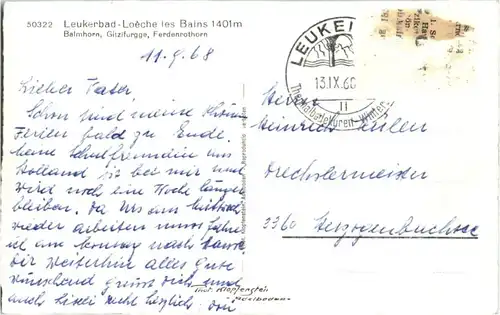 50322 Leukerbad-Loèche les Bains 1401m
Balmhorn, Gitzifurgge, Ferdenrothorn
11.9.68
Lieber Vater
Schon sind meine schönen
Ferien bald zu Ende.
Meine Schulfreundin aus
Holland ist bei mir und
wird noch eine Woche länger
bleiben. Da Urs am Mittwoch
wieder arbeiten muss fahre
ich am Montag nach Hause
Dir weiterhin alles Gute
wünschend grüsst dich und
auch Lisei recht herzlich
LEUKERBAD
13.IX.68
11
Thermalbadekuren-Winter
Herrn
Heinrich
Drechslermeister
3360 Herzogenbuchsee
Phot. Klopfenstein
Adelboden